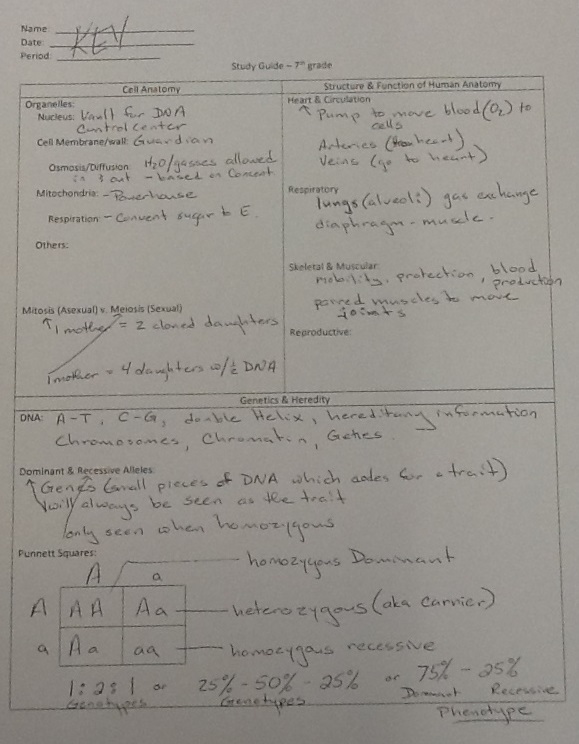 Name:
Date: KEY
Period:
Study Guide – 7th grade
Cell Anatomy
Organelles:
Nucleus: Vault for DNA
Control center
Cell Membrane/wall: Guardian
Osmosis/Diffusion: H2O/gasses allowed
in & out - based on Concent
Mitochondria: - Powerhouse
Respiration: - Convert sugar to E.
Others:
Mitosis (Asexual) v. Meiosis (Sexual)
↑ 1 mother = 2 cloned daughters
1 mother = 4 daughters w/ ½ DNA
Structure & Function of Human Anatomy
Heart & Circulation
↑ Pump to move blood (O2) to
cells
Arteries (from heart)
Veins (go to heart)
Respiratory
lungs (alveoli) gas exchange
diaphragm - muscle.
Skeletal & Muscular:
mobility, protection, blood
production
paired muscles to move
joints
Reproductive:
Genetics & Heredity
DNA: A-T, C-G, double Helix, hereditary information
Chromosomes, Chromatin, Genes.
Dominant & Recessive Alleles:
↑ Genes (small pieces of DNA which codes for a trait)
will always be seen as the trait
only seen when homozygous
Punnett Squares:
homozygous Dominant
A a
A AA Aa heterozygous (aka carrier)
a Aa aa homozygous recessive
1:2:1 or 25% - 50% - 25% or 75% - 25%
Genotypes Genotypes Dominant Recessive
Phenotype